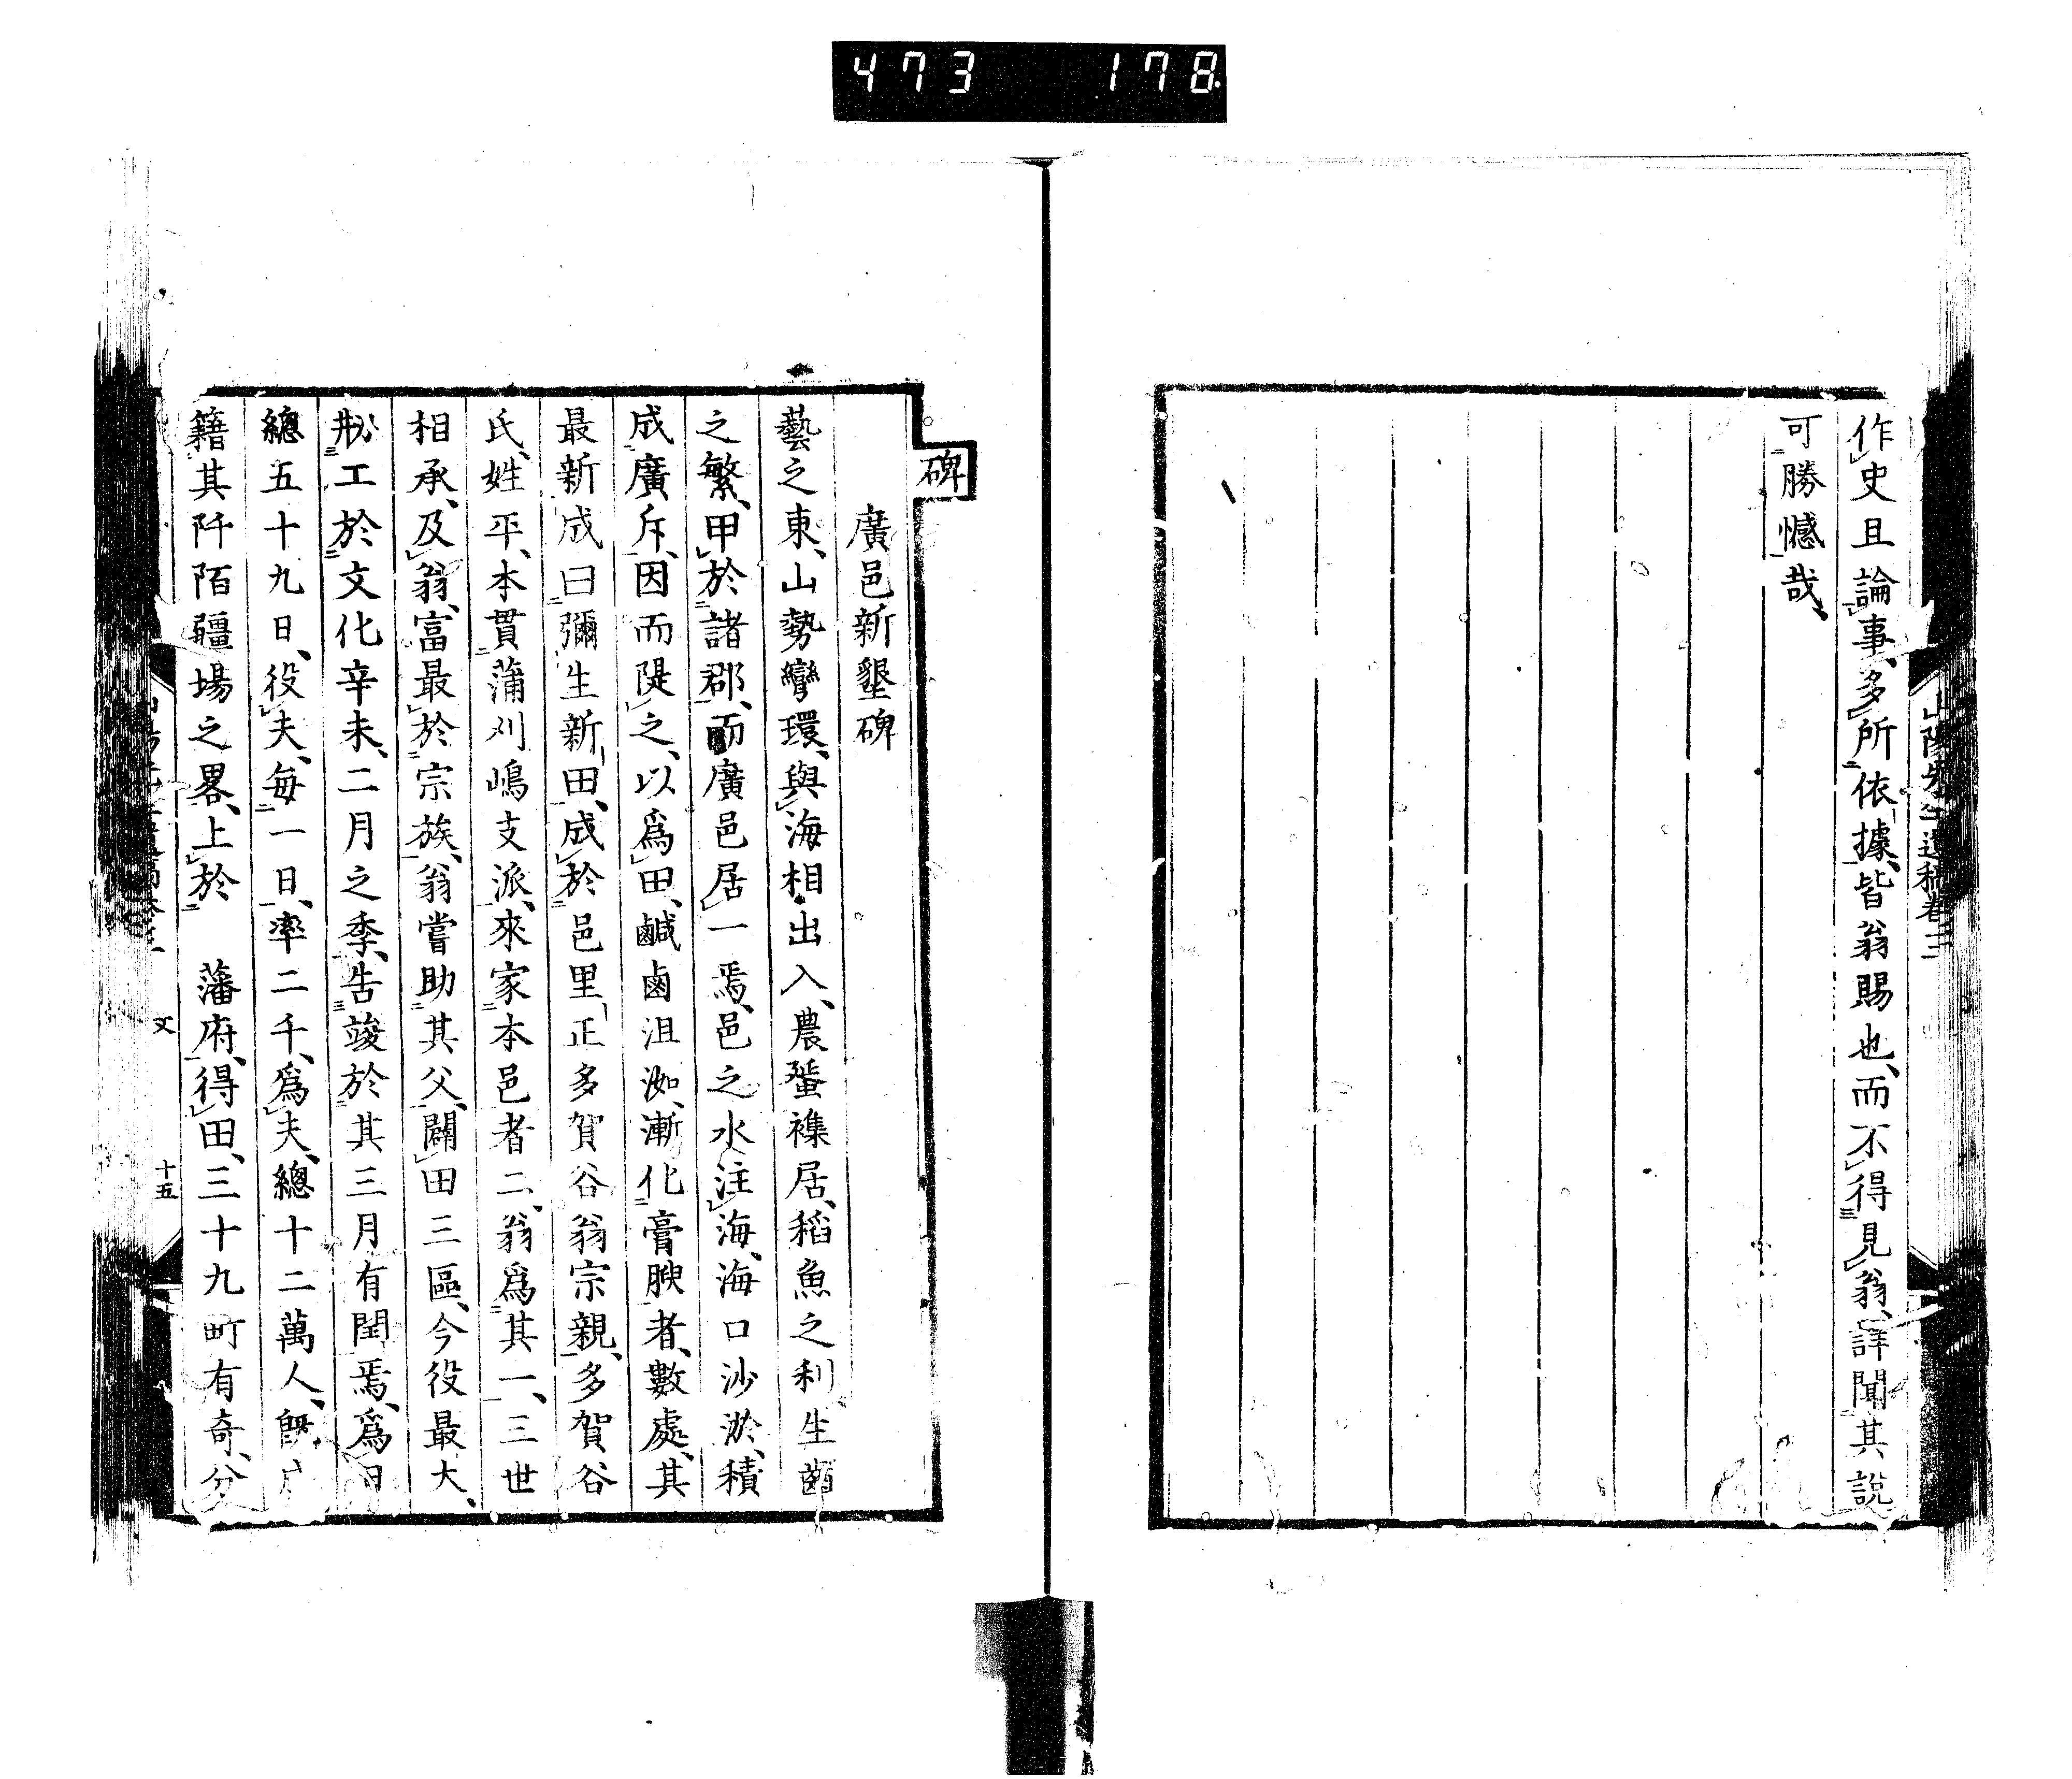 473 178.
作史且論事、多所依據、皆翁賜也、而不得見翁、詳聞其說
可勝憾哉、
碑
廣邑新墾碑
藝之東、山勢彎環、與海相出入、農蜑襍居、稻魚之利生齒
之繁、甲於諸郡、而廣邑居一焉、邑之水注海、海口沙淤、積
成廣斥、因而隄之、以爲田、鹹鹵沮洳、漸化膏腴者、數處、其
最新成曰彌生新田、成於邑里正多賀谷翁宗親、多賀谷
氏、姓平、本貫蒲刈嶋支派、來家本邑者二、翁爲其一、三世
相承、及翁、富最於宗族、翁嘗助其父、闢田三區、今役最大、
刱工於文化辛未、二月之季、告竣於其三月有閏焉、爲日
總五十九日、役夫、每一日、率二千、爲夫、總十二萬人、旣
籍其阡陌疆場之畧、上於　藩府、得田、三十九町有奇、分
文
十五